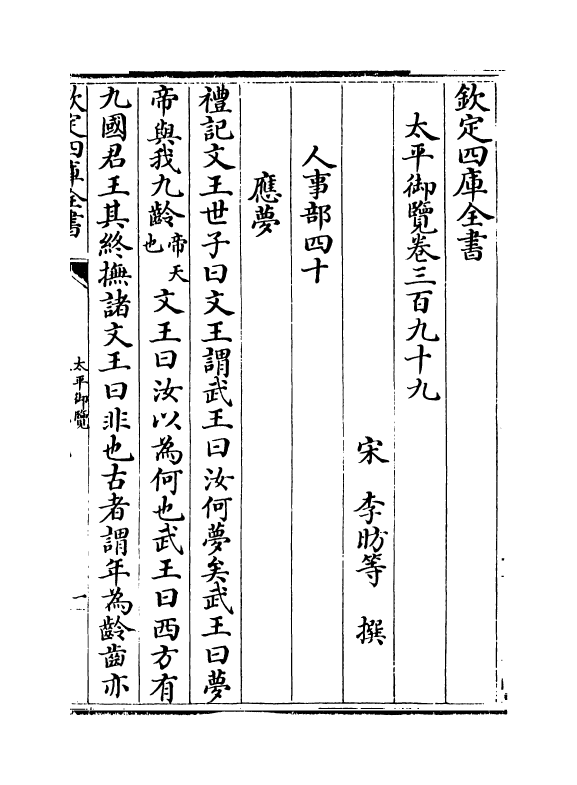 欽定四庫全書
太平御覽卷三百九十九
宋 李昉等 撰
人事部四十
應夢
禮記文王世子曰文王謂武王曰汝何夢矣武王曰夢
帝與我九齡帝天也文王曰汝以為何也武王曰西方有
九國君王其終撫諸文王曰非也古者謂年為齡齒亦
欽定四庫全書
太平御覽
一